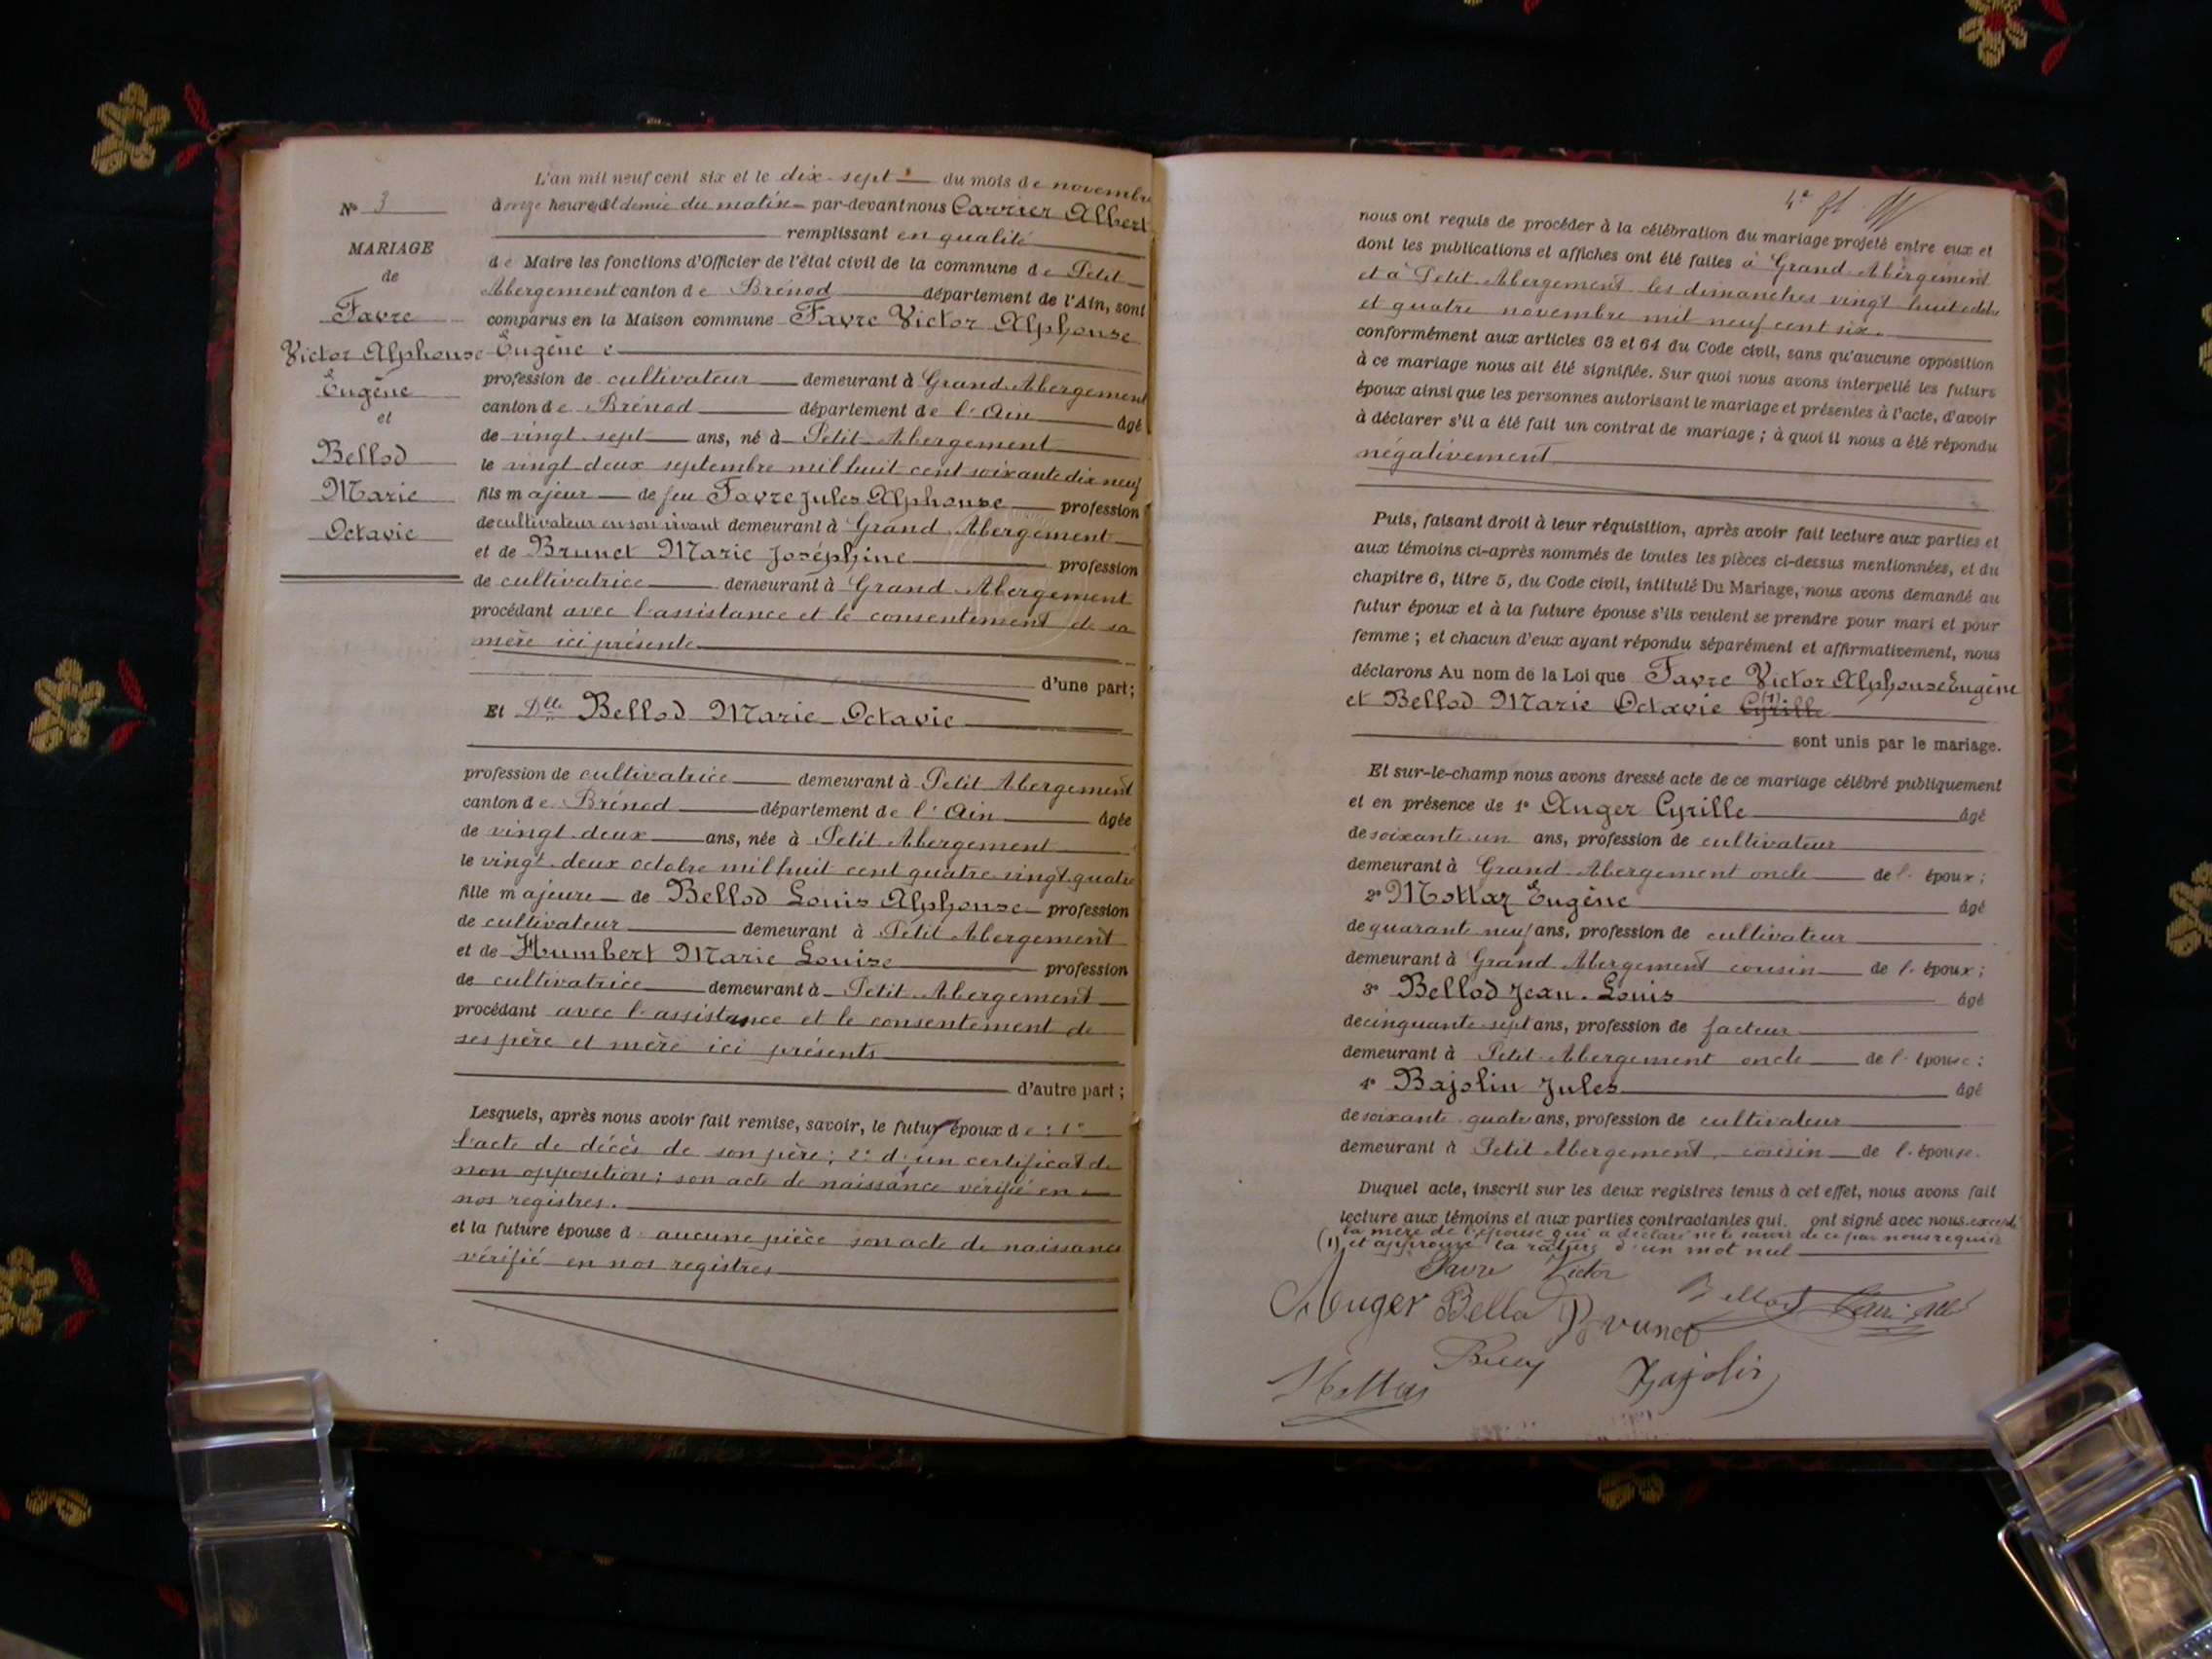 N° 3
MARIAGE
de
Favre
Victor Alphonse
Eugène
et
Bellod
Marie
Octavie
L'an mil neuf cent six et le dix-sept du mois de novembre
à onze heures et demie du matin par-devant nous Carrier Albert
remplissant en qualité
de Maire les fonctions d'Officier de l'état civil de la commune de Petit
Abergement canton de Brénod département de l'Ain, sont
comparus en la Maison commune Favre Victor Alphonse
Eugène
profession de cultivateur demeurant à Grand Abergement
canton de Brénod département de l'Ain âgé
de vingt-sept ans, né à Petit Abergement
le vingt-deux septembre mil huit cent soixante dix neuf
fils majeur de feu Favre Jules Alphonse profession
de cultivateur en son vivant demeurant à Grand Abergement
et de Brunet Marie Joséphine profession
de cultivatrice demeurant à Grand Abergement
procédant avec l'assistance et le consentement de sa
mère ici présente
d'une part;
Et Dlle Bellod Marie Octavie
profession de cultivatrice demeurant à Petit Abergement
canton de Brénod département de l'Ain âgée
de vingt-deux ans, née à Petit Abergement
le vingt-deux octobre mil huit cent quatre-vingt-quatre
fille majeure de Bellod Louis Alphonse profession
de cultivateur demeurant à Petit Abergement
et de Humbert Marie Louise profession
de cultivatrice demeurant à Petit Abergement
procédant avec l'assistance et le consentement de
ses père et mère ici présents
d'autre part;
Lesquels, après nous avoir fait remise, savoir, le futur époux de : 1°
l'acte de décès de son père; 2° d'un certificat de
non opposition; son acte de naissance vérifié en
nos registres.
et la future épouse d'aucune pièce son acte de naissance
vérifié en nos registres
nous ont requis de procéder à la célébration du mariage projeté entre eux et
dont les publications et affiches ont été faites à Grand Abergement
et à Petit Abergement les dimanches vingt huit octobre
et quatre novembre mil neuf cent six.
conformément aux articles 63 et 64 du Code civil, sans qu'aucune opposition
à ce mariage nous ait été signifiée. Sur quoi nous avons interpellé les futurs
époux ainsi que les personnes autorisant le mariage et présentes à l'acte, d'avoir
à déclarer s'il a été fait un contrat de mariage; à quoi il nous a été répondu
négativement
Puis, faisant droit à leur réquisition, après avoir fait lecture aux parties et
aux témoins ci-après nommés de toutes les pièces ci-dessus mentionnées, et du
chapitre 6, titre 5, du Code civil, intitulé Du Mariage, nous avons demandé au
futur époux et à la future épouse s'ils veulent se prendre pour mari et pour
femme; et chacun d'eux ayant répondu séparément et affirmativement, nous
déclarons Au nom de la Loi que Favre Victor Alphonse Eugène
et Bellod Marie Octavie Cyrille (1)
sont unis par le mariage.
Et sur-le-champ nous avons dressé acte de ce mariage célébré publiquement
et en présence de 1° Auger Cyrille âgé
de soixante un ans, profession de cultivateur
demeurant à Grand Abergement oncle de l'époux;
2° Mottaz Eugène âgé
de quarante neuf ans, profession de cultivateur
demeurant à Grand Abergement cousin de l'époux;
3° Bellod Jean-Louis âgé
de cinquante-sept ans, profession de facteur
demeurant à Petit Abergement oncle de l'épouse;
4° Bajolin Jules âgé
de soixante quatre ans, profession de cultivateur
demeurant à Petit Abergement cousin de l'épouse.
Duquel acte, inscrit sur les deux registres tenus à cet effet, nous avons fait
lecture aux témoins et aux parties contractantes qui ont signé avec nous excepté
la mère de l'épouse qui a déclaré ne le savoir de ce par nous requise
(1) et approuvé la rature d'un mot nul
Favre Victor
Auger Bellod Brunet Bellod
Bajolin